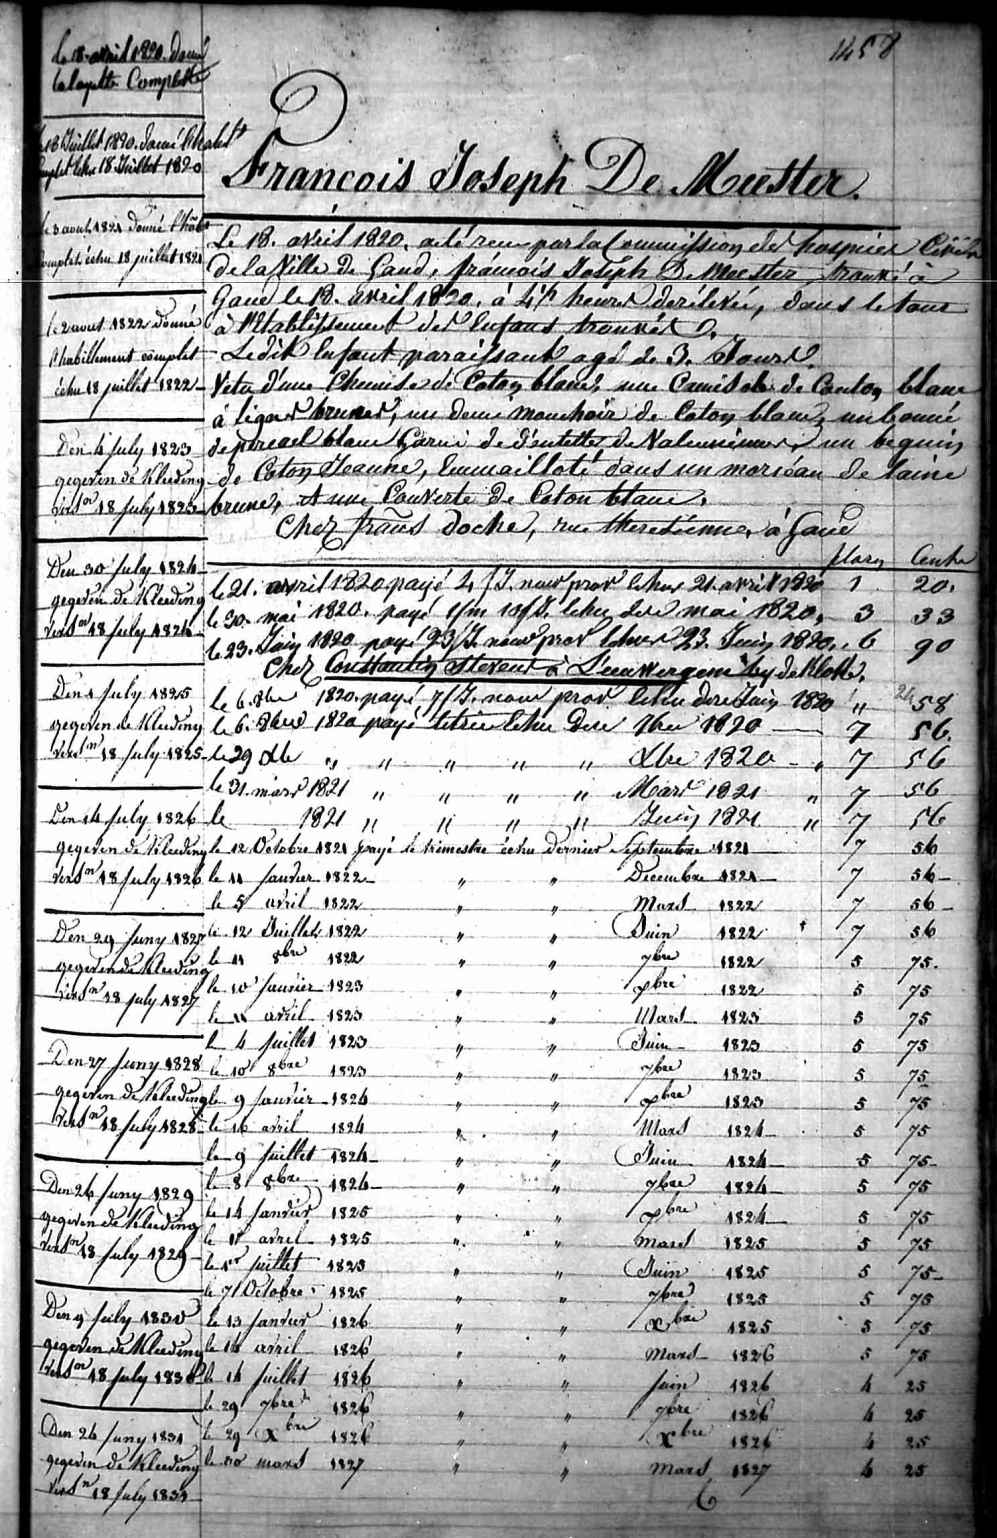 1458
le 18 avril 1820. donné
la layette Complette
18 Juillet 1820. donné l'habillt
complet échu 18 Juillet 1820
le 3 aout 1821 donné l'hab
complet échu 18 juillet 1821
le 2 aout 1822 donné
l'habillement complet
échu 18 juillet 1822
Den 4 july 1823
gegeven de Kleeding
versn 18 july 1823
Den 30 july 1824
gegeven de Kleeding
versn 18 july 1824
Den 1 july 1825
gegeven de Kleeding
versn 18 july 1825
Den 14 july 1826
gegeven de Kleeding
versn 18 july 1826
Den 29 juny 1827
gegeven de Kleeding
versn 18 july 1827
Den 27 juny 1828
gegeven de Kleeding
versn 18 july 1828
Den 26 juny 1829
gegeven de Kleeding
versn 18 july 1829
Den 9 july 1830
gegeven de Kleeding
versn 18 july 1830
Den 26 juny 1831
gegeven de Kleeding
versn 18 july 1831
François Joseph De Meester.
Le 18. avril 1820. a été reçu par la Commission des hospices Civils
de la Ville de Gand, françois Joseph De Meester trouvé à
Gand le 18. avril 1820. à 4½ heures de rélevée, dans le tour
à l'Etablissement des Enfans trouvés.
Ledit Enfant paraissant agé de 3. Jours.
Vetu d'une Chemise de Coton blanc, une Camisole de Couton blanc
à lignes brunes, un demi mouchoir de Coton blanc, un bonnet
de blanc Garni de d'entelle de Valencienne, un beguin
de Coton Jeaune, Emmailloté dans un morceau de laine
brune, et une Couverte de Coton blanc.
Chez frans Doche, rue theresienne, à Gand
florn Cents
le 21. avril 1820 payé 4 f 21. avril 1820 1 20.
le 30. mai 1820. payé mai 1820. 3 33
le 23. Juin 1820 payé 23 23. Juin 1820. 6 90
Chez Constantin Stevens à Leeuwergem by de
le 6. 8bre 1820. payé 7 Juin 1820 " 58
le 6. 8bre 1820 payé 7bre 1820 7 56.
le 29 Xbre " " " " " Xbre 1820 " 7 56
le 31. mars 1821 " " " " Mars 1821 " 7 56
le 1821 " " " " Juin 1821 " 7 56
le 12 Octobre 1821 payé le trimestre échu dernier Septembre 1821 7 56
le 11 janvier 1822 " " Decembre 1821 7 56
le 5 avril 1822 " " Mars 1822 7 56
le 12 Juillet 1822 " " Juin 1822 7 56
le 11 8bre 1822 " " 7bre 1822 5 75.
le 10 janvier 1823 " " Xbre 1822 5 75
le 11 avril 1823 " " Mars 1823 5 75
le 4 juillet 1823 " " Juin 1823 5 75
le 10 8bre 1823 " " 7bre 1823 5 75
le 9 janvier 1824 " " Xbre 1823 5 75
le 16 avril 1824 " " Mars 1824 5 75
le 9 juillet 1824 " " Juin 1824 5 75
le 8 8bre 1824 " " 7bre 1824 5 75
le 14 janvier 1825 " " Xbre 1824 5 75
le avril 1825 " " Mars 1825 5 75
le 1er juillet 1825 " " Juin 1825 5 75
le 7 Octobre 1825 " " 7bre 1825 5 75
le 13 janvier 1826 " " Xbre 1825 5 75
le 14 avril 1826 " " Mars 1826 5 75
le 14 juillet 1826 " " juin 1826 4 25
le 29 7bre 1826 " " 7bre 1826 4 25
le 29 Xbre 1826 " " Xbre 1826 4 25
le 30 mars 1827 " " Mars 1827 4 25